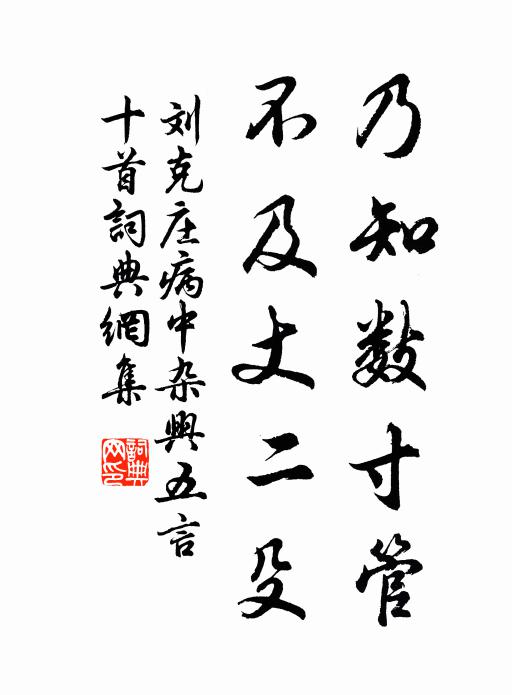 乃知数寸管
不及丈二殳
刘克庄病中杂興五言
十首詞典網集
詞典
网印